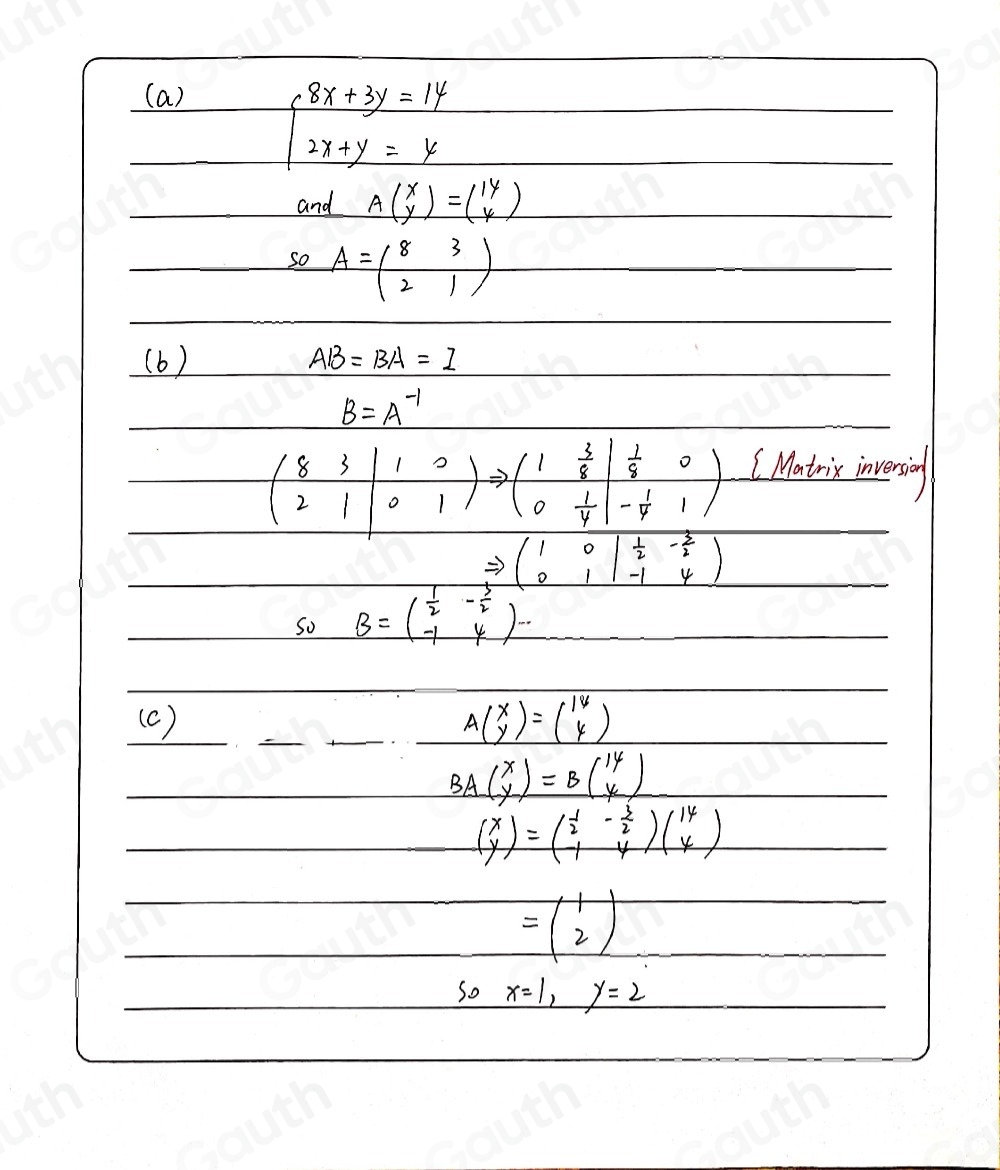 (a) { 8x + 3y = 14
2x + y = 4
and A (x y) = (14 4)
so A = (8 3
2 1)
(b) AB = BA = I
B = A⁻¹
(8 3 | 1 0
2 1 | 0 1) ⇒ (1 3/8 | 1/8 0
0 1/4 | -1/4 1) { Matrix inversion}
⇒ (1 0 | 1/2 -3/2
0 1 | -1 4)
so B = (1/2 -3/2
-1 4)
(c) A (x y) = (14 4)
BA (x y) = B (14 4)
(x y) = (1/2 -3/2
-1 4) (14 4)
= (1
2)
so x=1, y=2
Gauth